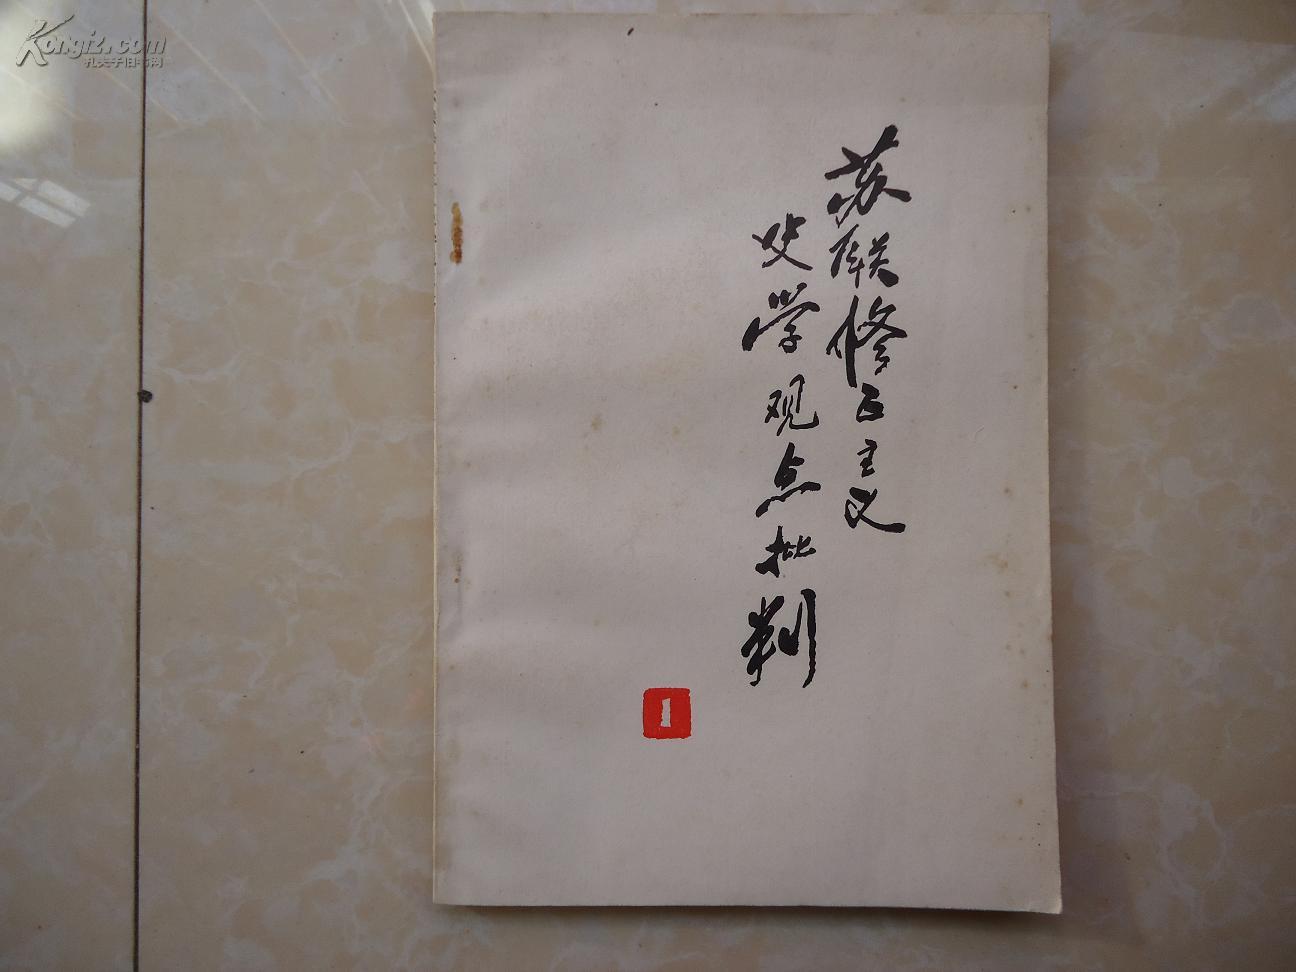 Kongfz.com
孔夫子旧书网
苏联修正主义
史学观点批判
1